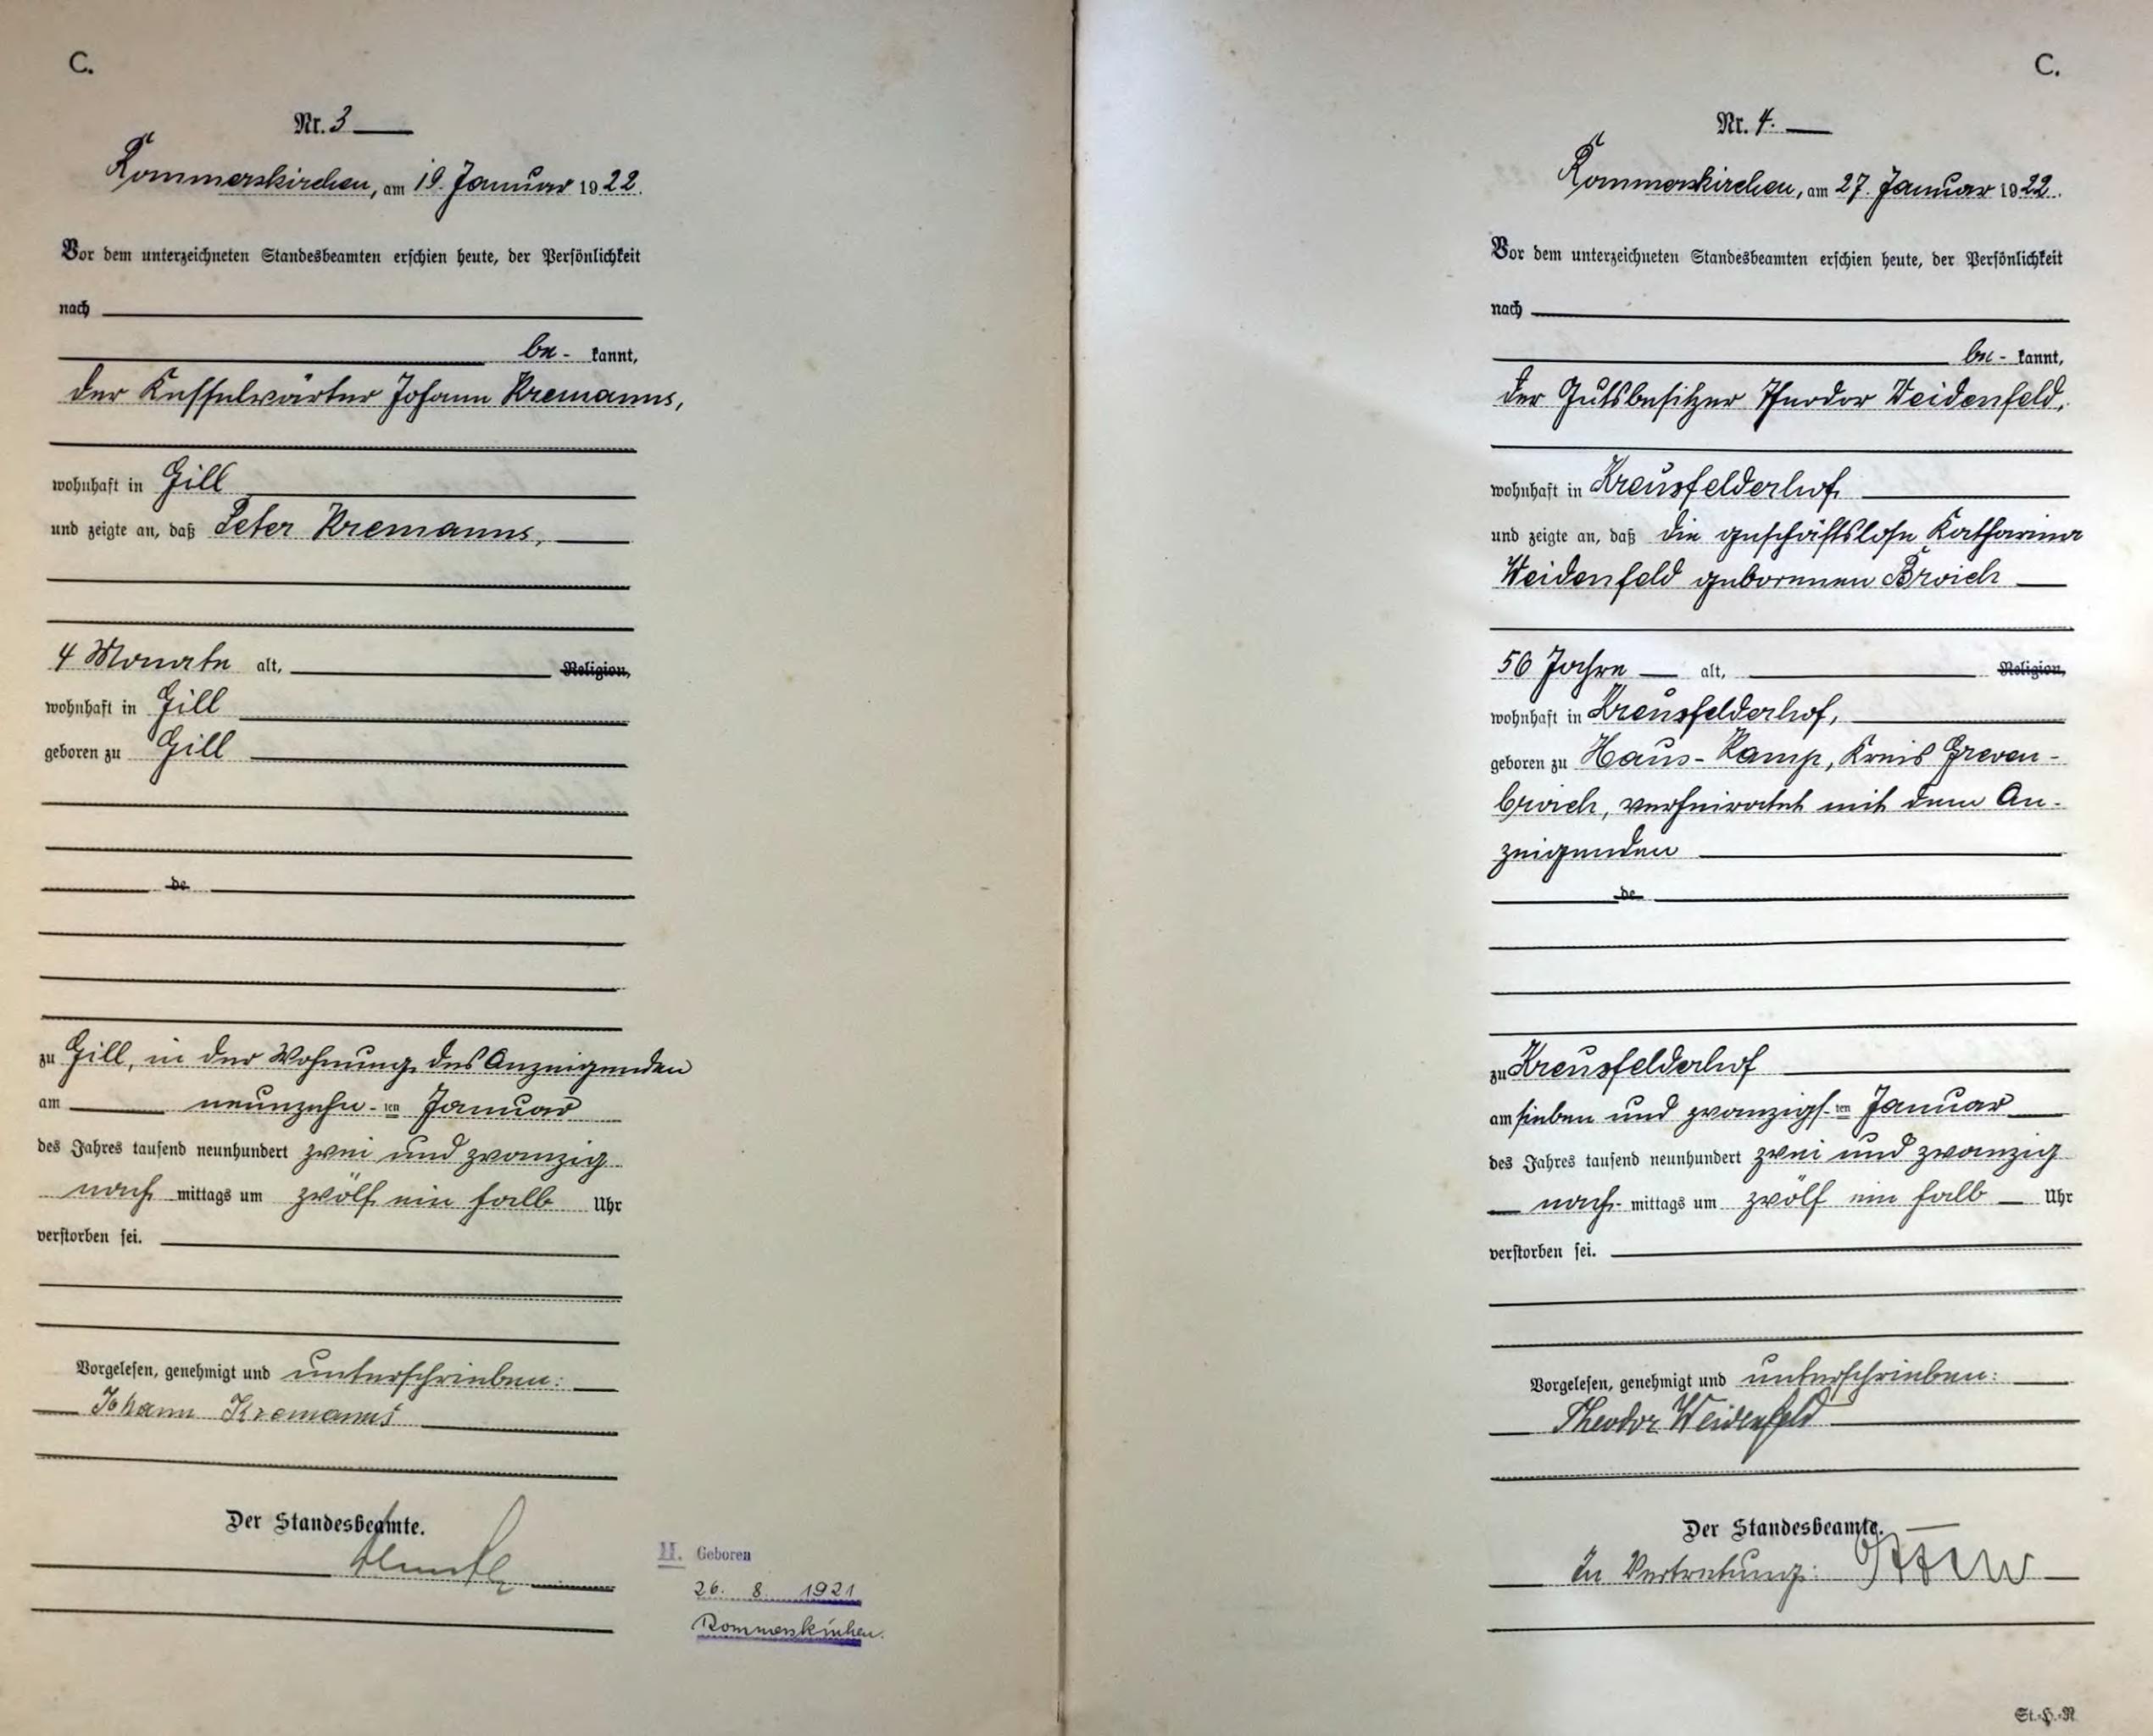 C.
Nr. 3
Rommerskirchen, am 19. Januar 1922.
Vor dem unterzeichneten Standesbeamten erschien heute, der Persönlichkeit
nach
be- kannt,
der Kesselwärter Johann Kremanns,
wohnhaft in Gill
und zeigte an, daß Peter Kremanns,
4 Monate alt, Religion,
wohnhaft in Gill
geboren zu Gill
de
zu Gill, in der Wohnung des Anzeigenden
am neunzehn-ten Januar
des Jahres tausend neunhundert zwei und zwanzig
nach mittags um zwölf ein halb Uhr
verstorben sei.
Vorgelesen, genehmigt und unterschrieben:
Johann Kremanns
Der Standesbeamte.
II. Geboren
26. 8. 1921
Rommerskirchen.
C.
Nr. 4.
Rommerskirchen, am 27. Januar 1922.
Vor dem unterzeichneten Standesbeamten erschien heute, der Persönlichkeit
nach
be- kannt,
der Gutsbesitzer Theodor Weidenfeld,
wohnhaft in Kreusfelderhof
und zeigte an, daß die geschäftslose Katharina
Weidenfeld geborenen Broich
56 Jahre alt, Religion,
wohnhaft in Kreusfelderhof,
geboren zu Haus-Kamp, Kreis Greven-
broich, verheiratet mit dem An-
zeigenden
de
zu Kreusfelderhof
am sieben und zwanzigs-ten Januar
des Jahres tausend neunhundert zwei und zwanzig
nach- mittags um zwölf ein halb Uhr
verstorben sei.
Vorgelesen, genehmigt und unterschrieben:
Theodor Weidenfeld
Der Standesbeamte.
In Vertretung:
St.-H.-R